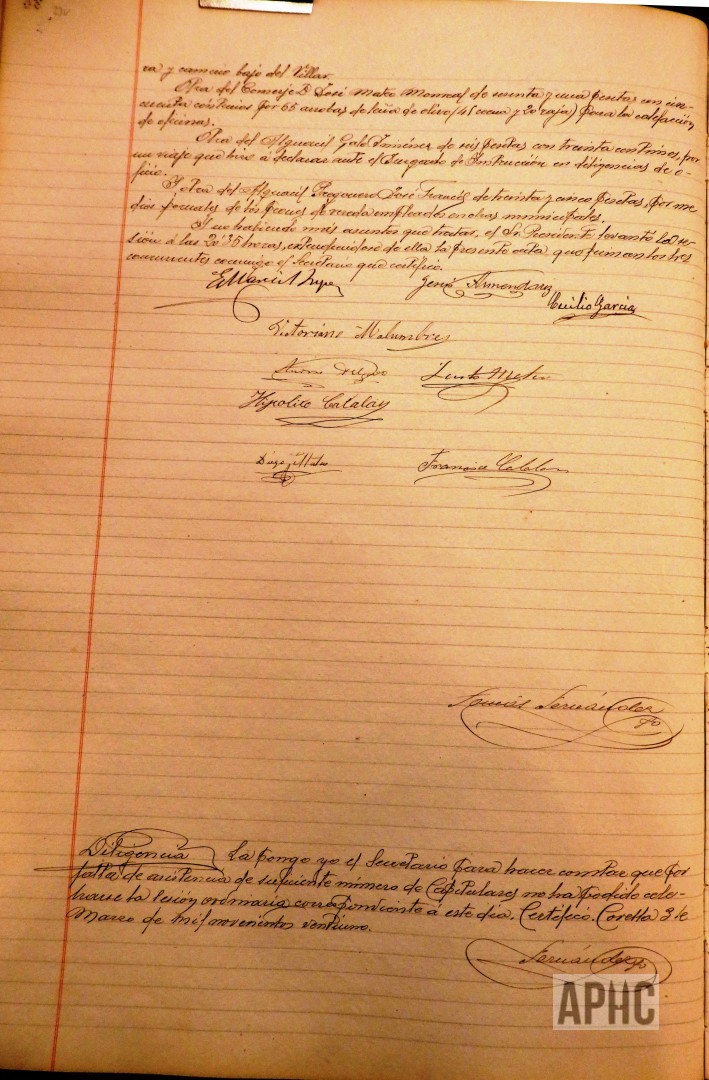 ra y camino bajo del Villar.
Otra del Conserje D. José Mateo Monreal de sesenta y una pesetas con cin-
cuenta céntimos por 65 arrobas de leña de olivo (45 cuena y 20 raja) para la calefacción
de oficinas.
Otra del Alguacil Galo Jiménez de seis pesetas con treinta céntimos, por
un viaje que hizo á declarar ante el Juzgado de Instrucción en diligencias de o-
ficio.
Y otra del Alguacil Pregonero José Francés de treinta y cinco pesetas, por me
dios jornales de los peones de ronda empleados en obras municipales.
Y no habiendo más asuntos que tratar, el Sr. Presidente levantó la se-
sión á las 20'35 horas, extendiéndose de ella la presente acta que firman los Sres
concurrentes conmigo el Secretario que certifico.
Jesús Armendariz
Cecilio Garcia
Victoriano Malumbres
Hipolito Catalan
Diego Mateo
Francisco Catalan
Tomás Fernández
Diligencia La pongo yo el Secretario para hacer constar que por
falta de asistencia de suficiente número de Capitulares no ha podido cele-
brarse la sesión ordinaria correspondiente á este día. Certifico. Corella 3 de
Marzo de mil novecientos veintiuno.
Fernández
APHC